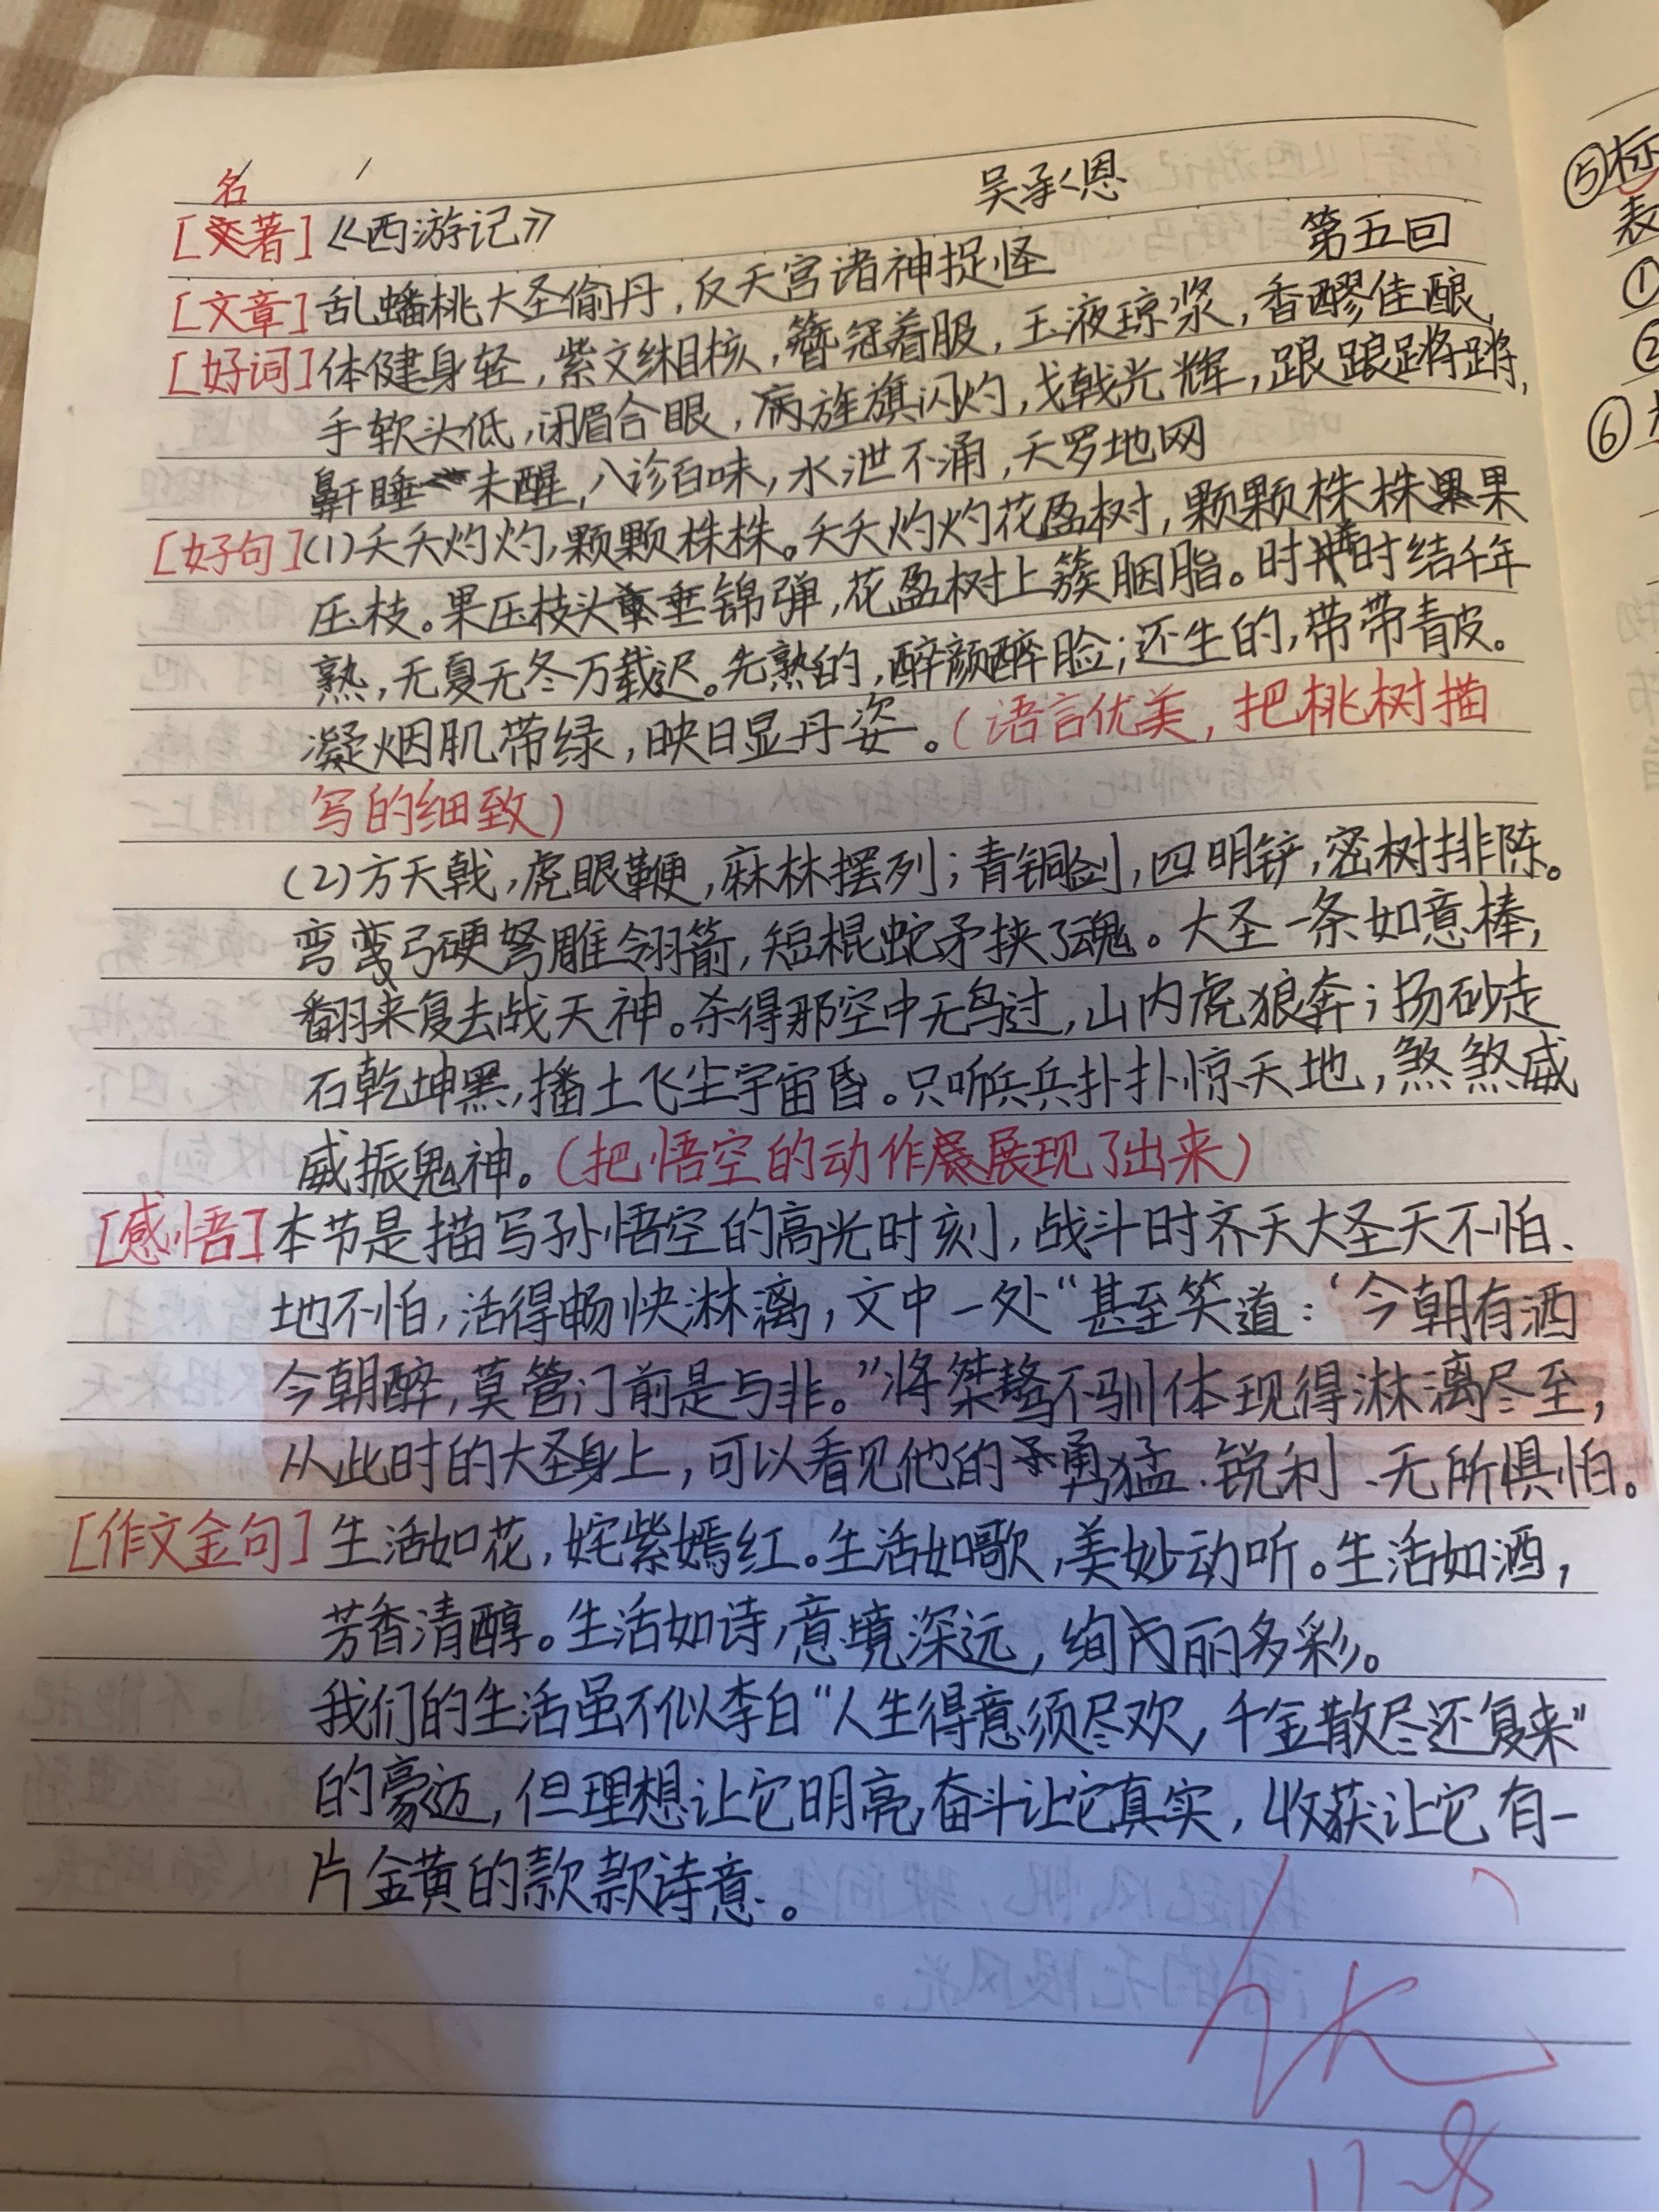 名
[著]《西游记》 吴承恩
[文章]乱蟠桃大圣偷丹,反天宫诸神捉怪 第五回
[好词]体健身轻,紫文缃核,簪冠着服,玉液琼浆,香醪佳酿,
手软头低,闭眉合眼,旌旗闪灼,戈戟光辉,踉踉蹡蹡,
鼾睡未醒,八诊百味,水泄不涌,天罗地网
[好句](1)夭夭灼灼,颗颗株株。夭夭灼灼花盈树,颗颗株株果
压枝。果压枝头垂锦弹,花盈树上簇胭脂。时开时结千年
熟,无夏无冬万载迟。先熟的,酡颜醉脸;还生的,带带青皮。
凝烟肌带绿,映日显丹姿。(语言优美,把桃树描
写的细致)
(2)方天戟,虎眼鞭,麻林摆列;青铜剑,四明铲,密树排阵。
弯弯弓硬弩雕翎箭,短棍蛇矛挟了魂。大圣一条如意棒,
翻来复去战天神。杀得那空中无鸟过,山内虎狼奔;扬砂走
石乾坤黑,播土飞尘宇宙昏。只听兵兵扑扑惊天地,煞煞威
威振鬼神。(把悟空的动作展现了出来)
[感悟]本节是描写孙悟空的高光时刻,战斗时齐天大圣天不怕、
地不怕,活得畅快淋漓,文中一处“甚至笑道:‘今朝有酒
今朝醉,莫管门前是与非。”将桀骜不驯体现得淋漓尽至,
从此时的大圣身上,可以看见他的勇猛、锐利、无所惧怕。
[作文金句]生活如花,姹紫嫣红。生活如歌,美妙动听。生活如酒,
芳香清醇。生活如诗,意境深远,绚丽多彩。
我们的生活虽不似李白“人生得意须尽欢,千金散尽还复来”
的豪迈,但理想让它明亮,奋斗让它真实,收获让它有一
片金黄的款款诗意。
优
11-8
⑤标
表
①
②
⑥